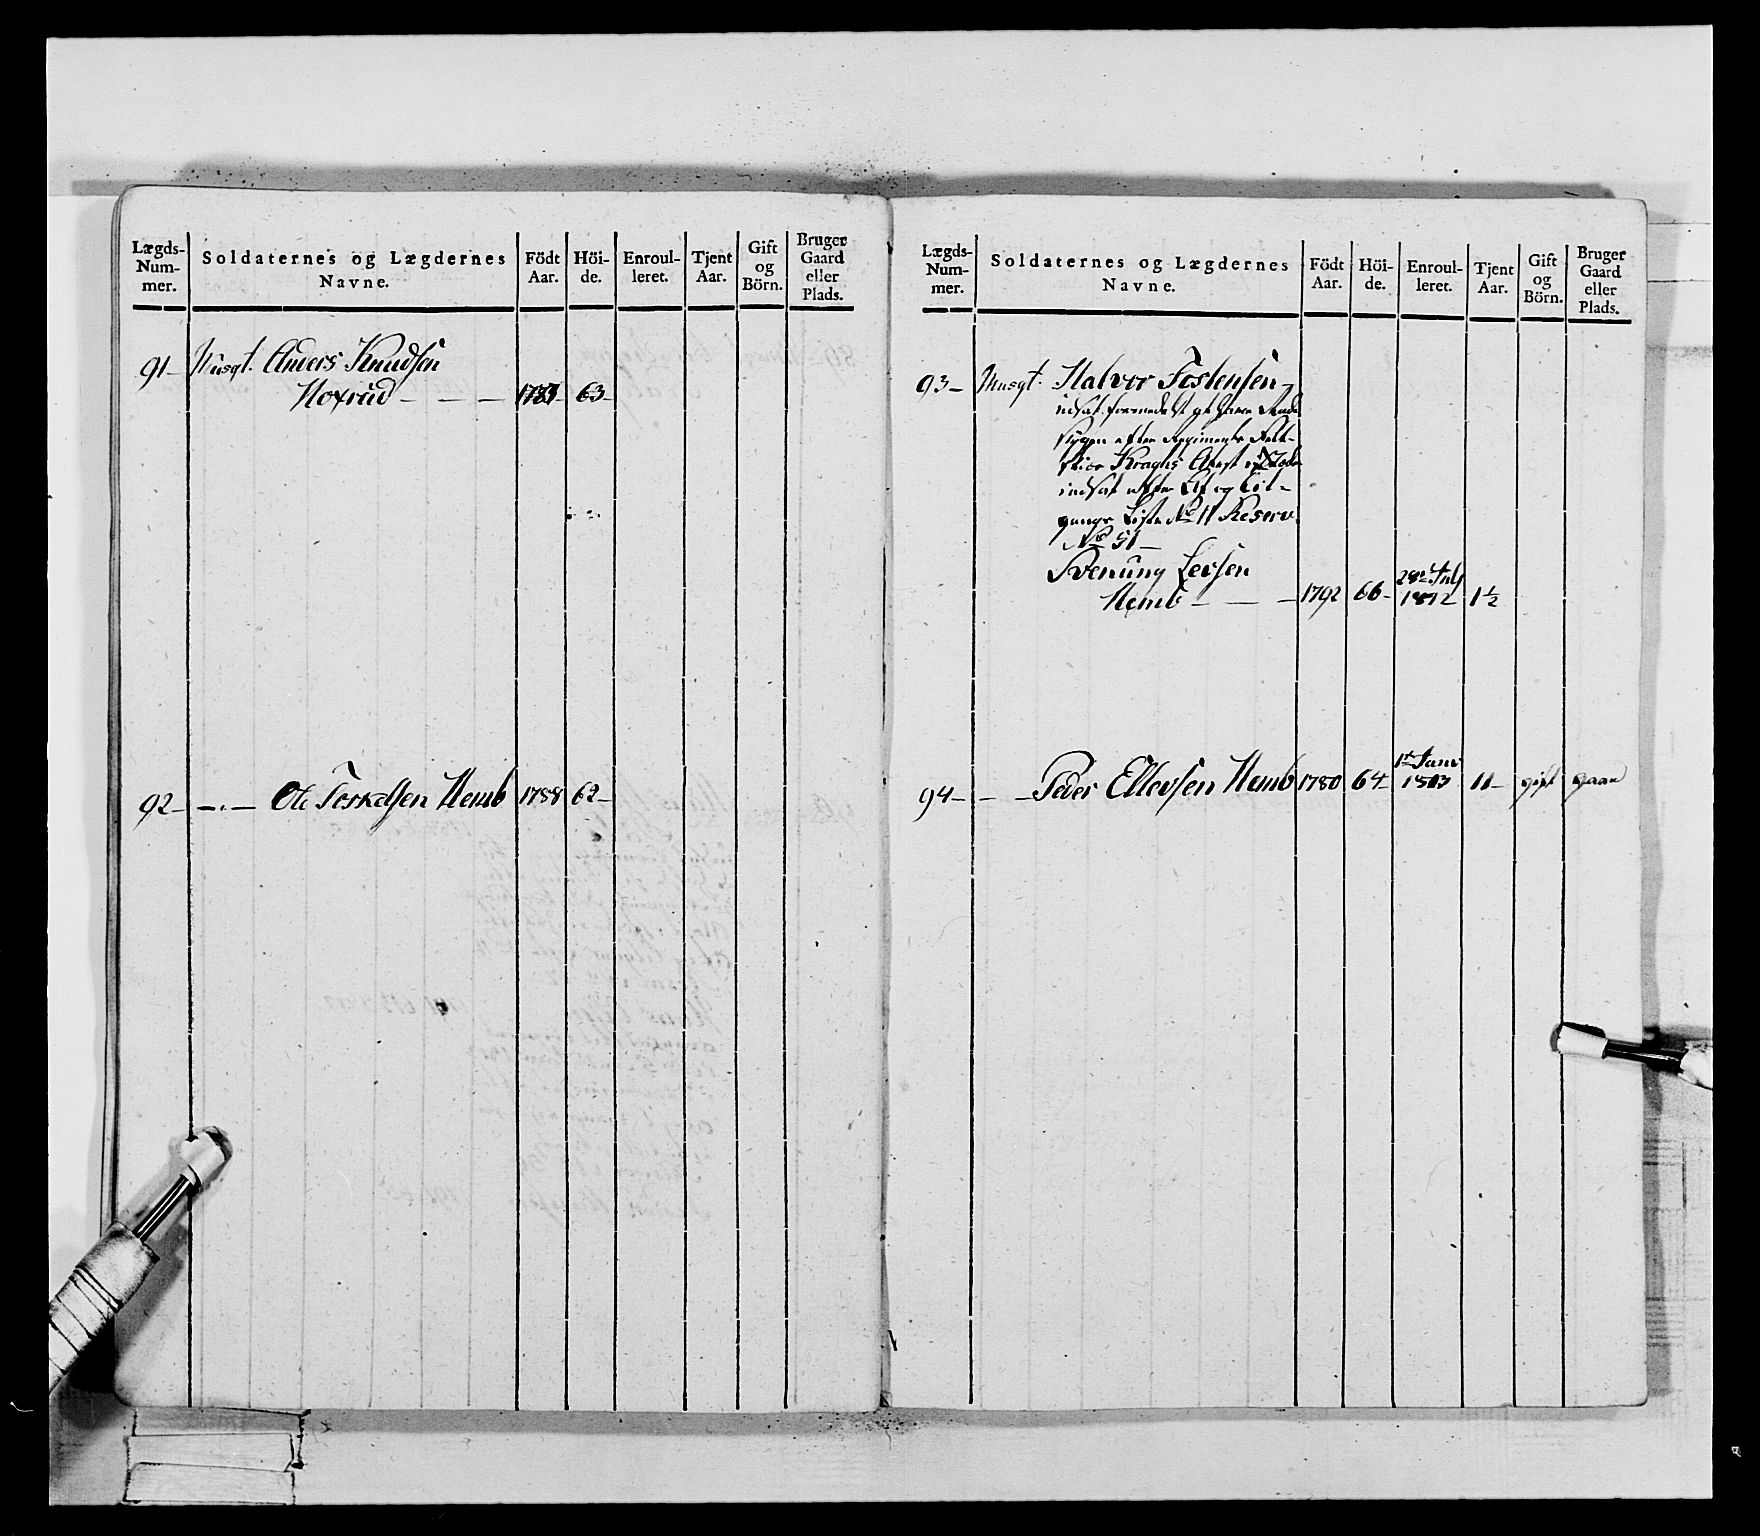 Lægds-
Num-
mer.
Soldaternes og Lægdernes
Navne.
Födt
Aar.
Höi-
de.
Enroul-
leret.
Tjent
Aar.
Gift
og
Börn.
Bruger
Gaard
eller
Plads.
91- Musqt. Anders Knudsen
Hoxrud - - - 63-
92- -.- Ole Torkelsen Hemb 1788 62-
Lægds-
Num-
mer.
Soldaternes og Lægdernes
Navne.
Födt
Aar.
Höi-
de.
Enroul-
leret.
Tjent
Aar.
Gift
og
Börn.
Bruger
Gaard
eller
Plads.
93- Musqt. Halvor Tostensen
efter Regiments Felt-
Kraghs
indsat efter Af og Til-
gangs Liste No 11 Reserv.
No 51-
Svenung
28de July
Hemb - - - 1792 66- 1812 1½
1st Janv
94- - - Peder Ellevsen Hemb 1780 64- 1803 11- gift gaar